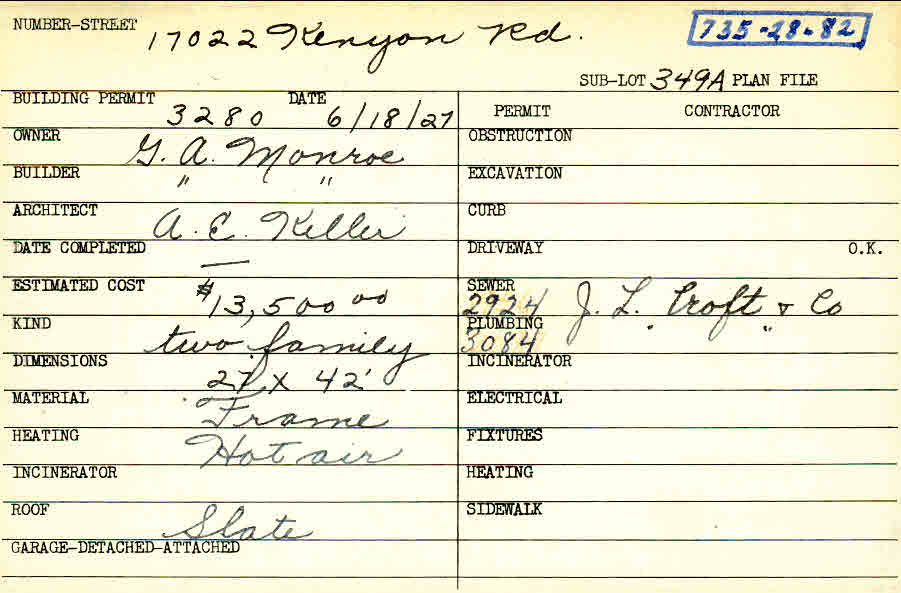 NUMBER-STREET 17022 Kenyon Rd. 735-28-82
SUB-LOT 349A PLAN FILE
BUILDING PERMIT 3280 DATE 6/18/27
PERMIT CONTRACTOR
OWNER G. A. Monroe
OBSTRUCTION
BUILDER " " 
EXCAVATION
ARCHITECT A. E. Keller
CURB
DATE COMPLETED —
DRIVEWAY O.K.
ESTIMATED COST $13,500 00
SEWER 2924 J. L. Croft & Co
KIND two family
PLUMBING 3084 " "
DIMENSIONS 27 x 42'
INCINERATOR
MATERIAL Frame
ELECTRICAL
HEATING Hot air
FIXTURES
INCINERATOR
HEATING
ROOF Slate
SIDEWALK
GARAGE-DETACHED-ATTACHED